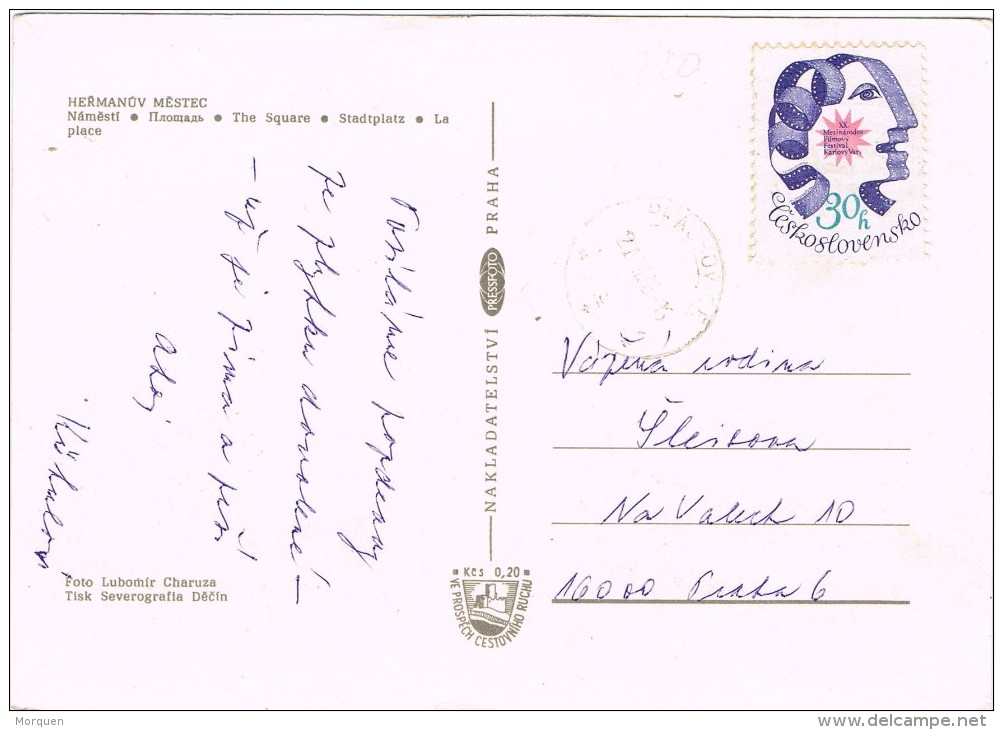 HEŘMANŮV MĚSTEC
Náměstí ● Площадь ● The Square ● Stadtplatz ● La
place
Posíláme pozdravy
ze zbytku dovolené –
– už je zima a prší.
Ahoj
Foto Lubomír Charuza
Tisk Severografia Děčín
NAKLADATELSTVÍ PRESSFOTO PRAHA
Kčs 0,20
VE PROSPĚCH CESTOVNÍHO RUCHU
XX.
Mezinárodní
Filmový
Festival
Karlovy Vary
30h
Československo
Vážená rodina
Na Valech 10
16000 Praha 6
Morquen
delcampe.net